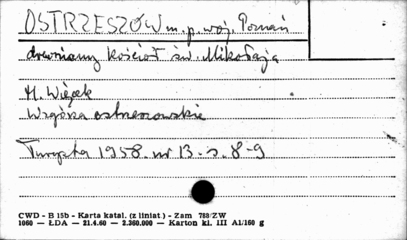 OSTRZESZÓW m. p. woj. Poznań
drewniany kościół św. Mikołaja
H. Więcek
Wzgórza ostrzeszowskie
Turysta 1958. nr 13. s. 8-9
CWD - B 15b - Karta katal. (z liniat.) - Zam 788/ZW
1060 — ŁDA — 21.4.60 — 2.360.000 — Karton kl. III A1/160 g